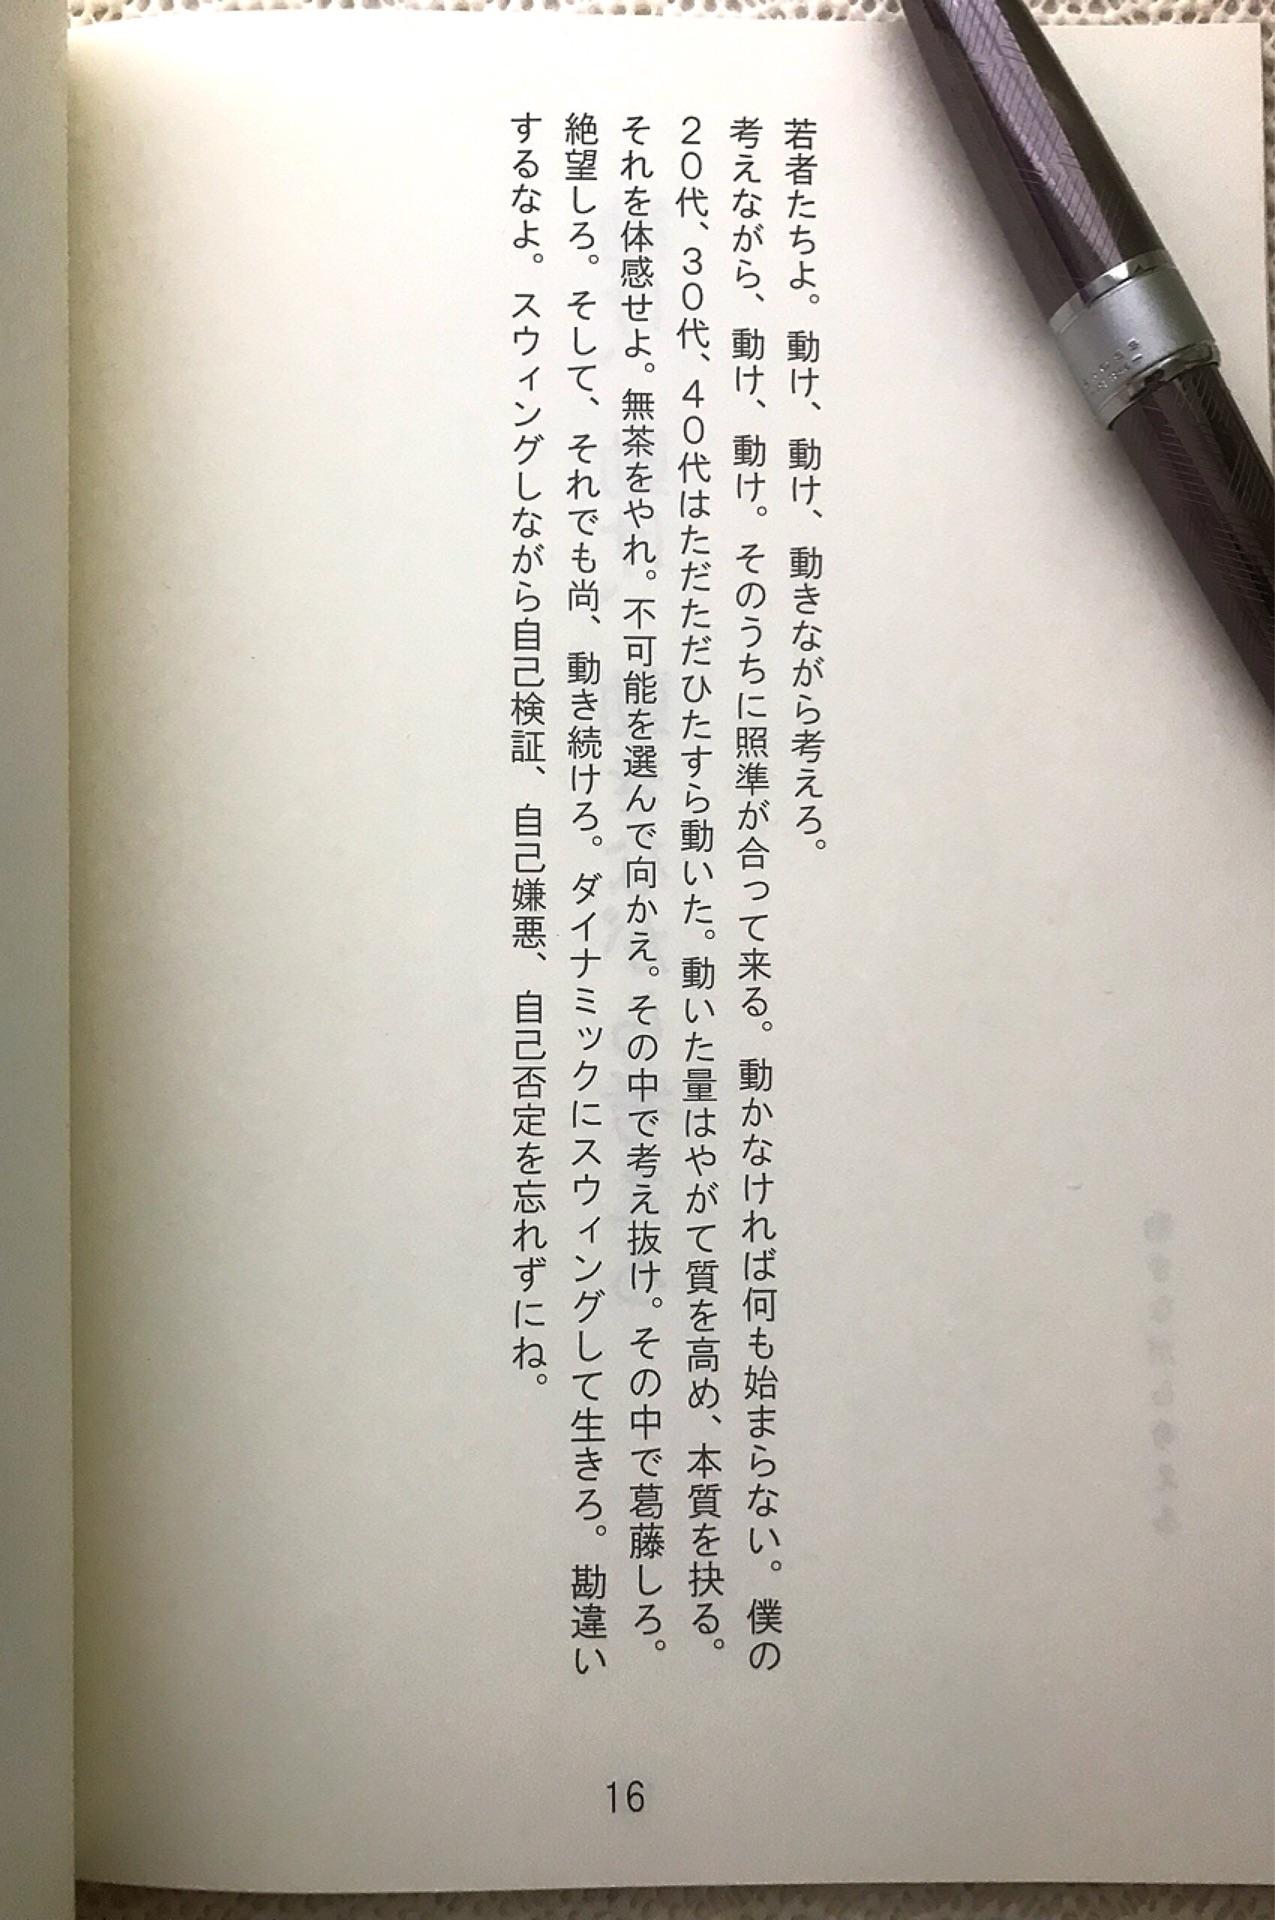 若者たちよ。動け、動け、動きながら考えろ。
考えながら、動け、動け。そのうちに照準が合って来る。動かなければ何も始まらない。僕の
20代、30代、40代はただただひたすら動いた。動いた量はやがて質を高め、本質を抉る。
それを体感せよ。無茶をやれ。不可能を選んで向かえ。その中で考え抜け。その中で葛藤しろ。
絶望しろ。そして、それでも尚、動き続けろ。ダイナミックにスウィングして生きろ。勘違い
するなよ。スウィングしながら自己検証、自己嫌悪、自己否定を忘れずにね。
16